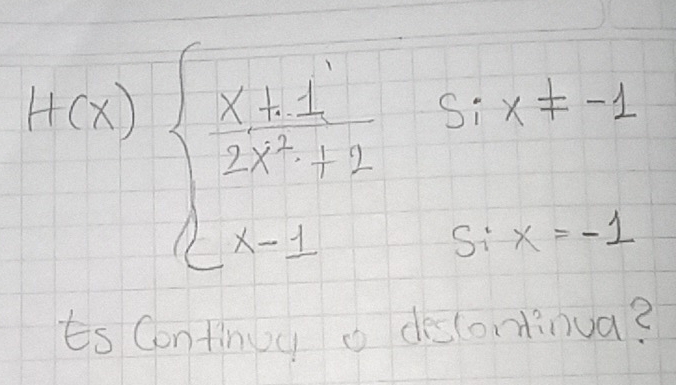 H(x) { x + 1 / 2x² + 2 Si x ≠ -1
x - 1 Si x = -1
Es Continua o discontinua?